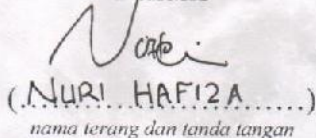 (NURI HAFIZA)
nama terang dan tanda tangan